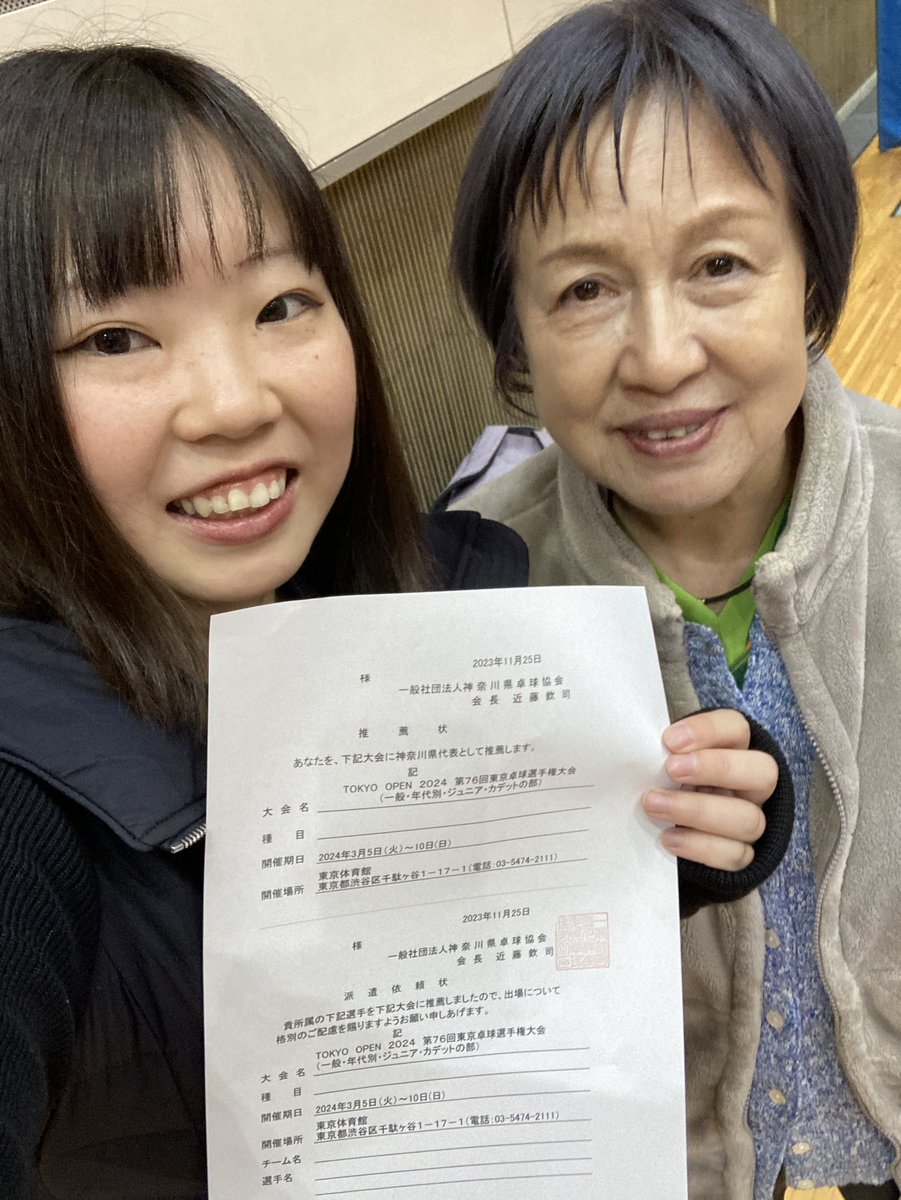 2023年11月25日
様
一般社団法人神奈川県卓球協会
会長 近藤欽司
推薦状
あなたを、下記大会に神奈川県代表として推薦します。
記
TOKYO OPEN 2024 第76回東京卓球選手権大会
大会名 (一般・年代別・ジュニア・カデットの部)
種目
開催期日 2024年3月5日(火)~10日(日)
東京体育館
開催場所 東京都渋谷区千駄ヶ谷1-17-1(電話:03-5474-2111)
2023年11月25日
様
一般社団法人神奈川県卓球協会
会長 近藤欽司
派遣依頼状
貴所属の下記選手を下記大会に推薦しましたので、出場について
格別のご配慮を賜りますようお願い申しあげます。
記
TOKYO OPEN 2024 第76回東京卓球選手権大会
大会名 (一般・年代別・ジュニア・カデットの部)
種目
開催期日 2024年3月5日(火)~10日(日)
東京体育館
開催場所 東京都渋谷区千駄ヶ谷1-17-1(電話:03-5474-2111)
チーム名
選手名